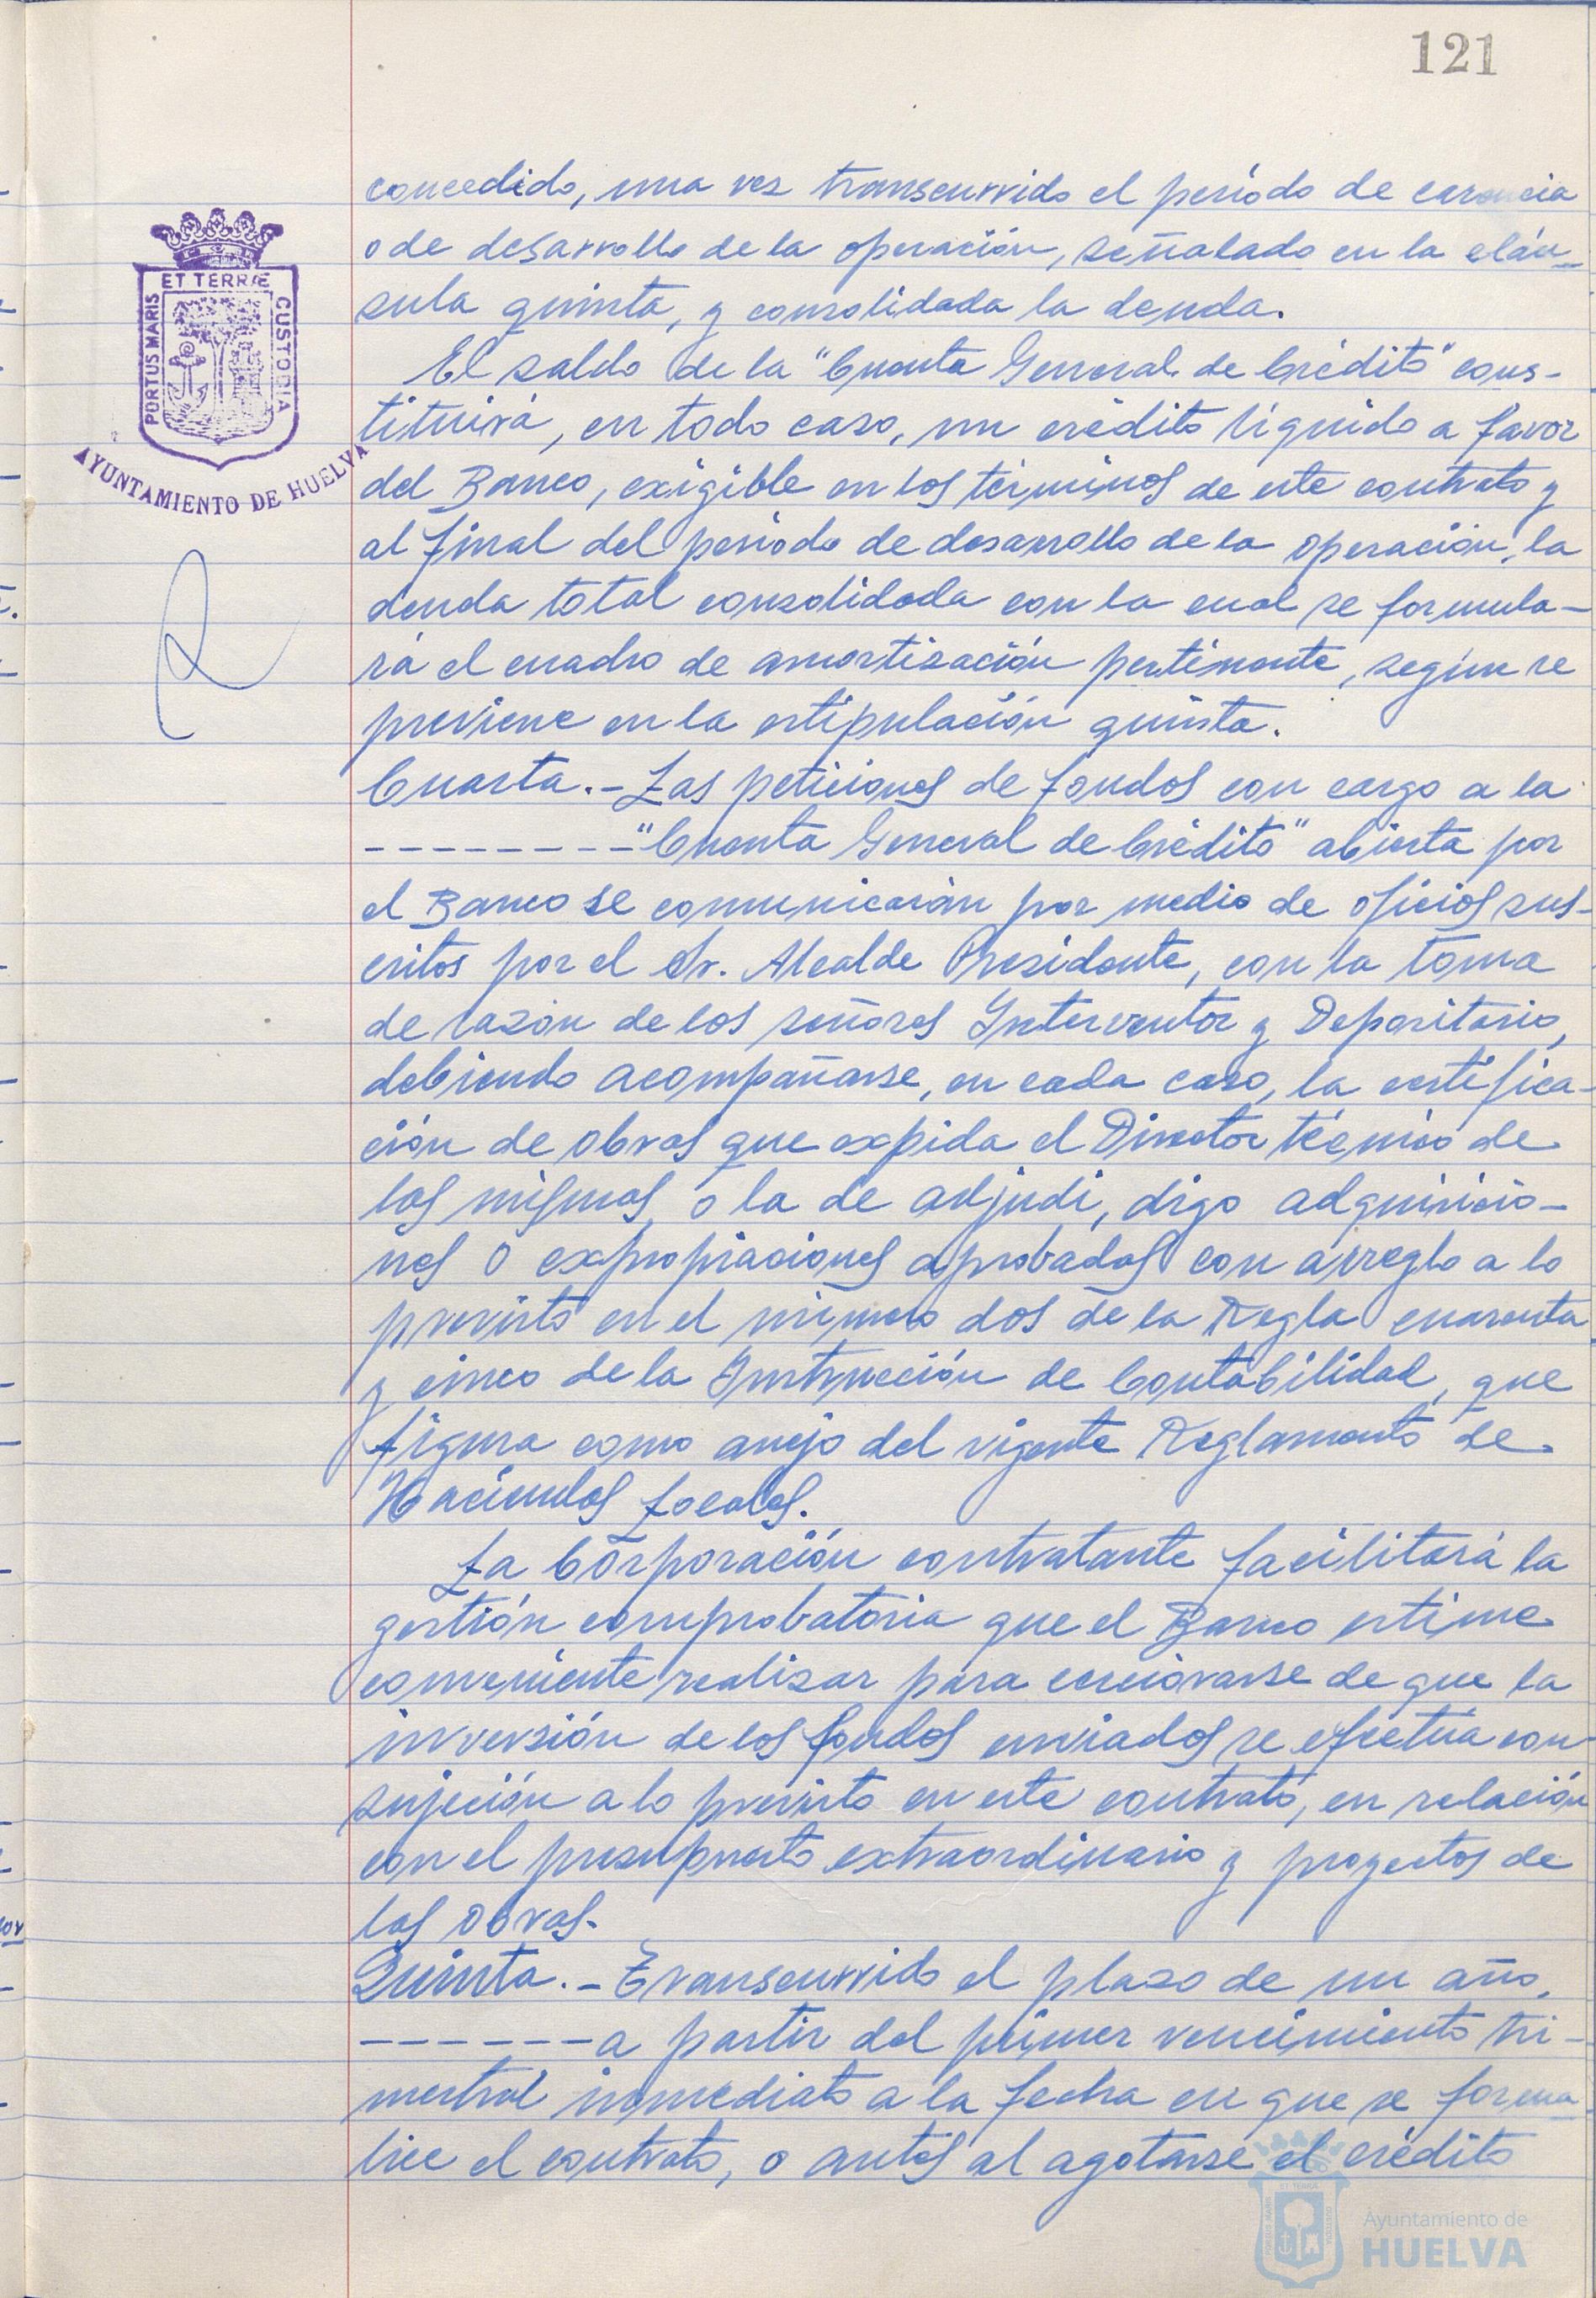 121
concedido, una vez transcurrido el período de carencia
o de desarrollo de la operación, señalado en la cláu-
sula quinta, y consolidada la deuda.
El saldo de la "Cuenta General de Crédito" cons-
tituirá, en todo caso, un crédito líquido a favor
del Banco, exigible en los términos de este contrato y
al final del período de desarrollo de la operación, la
deuda total consolidada con la cual se formula-
rá el cuadro de amortización pertinente, según se
previene en la estipulación quinta.
Cuarta.- Las peticiones de fondos con cargo a la
--------"Cuenta General de Crédito" abierta por
el Banco se comunicarán por medio de oficios sus-
critos por el Sr. Alcalde Presidente, con la toma
de razón de los señores Interventor y Depositario,
debiendo acompañarse, en cada caso, la certifica-
ción de obras que expida el Director técnico de
las mismas, o la de adjudi, digo adquisicio-
nes o expropiaciones aprobadas con arreglo a lo
previsto en el número dos de la Regla cuarenta
y cinco de la Instrucción de Contabilidad, que
figura como anejo del vigente Reglamento de
Haciendas Locales.
La Corporación contratante facilitará la
gestión comprobatoria que el Banco estime
conveniente realizar para cerciorarse de que la
inversión de los fondos enviados se efectúa con
sujeción a lo previsto en este contrato, en relación
con el presupuesto extraordinario y proyectos de
las obras.
Quinta.- Transcurrido el plazo de un año,
------a partir del primer vencimiento tri-
mestral inmediato a la fecha en que se forma-
lice el contrato, o antes al agotarse el crédito
ET TERRÆ
PORTUS MARIS
CUSTODIA
AYUNTAMIENTO DE HUELVA
Ayuntamiento de
HUELVA